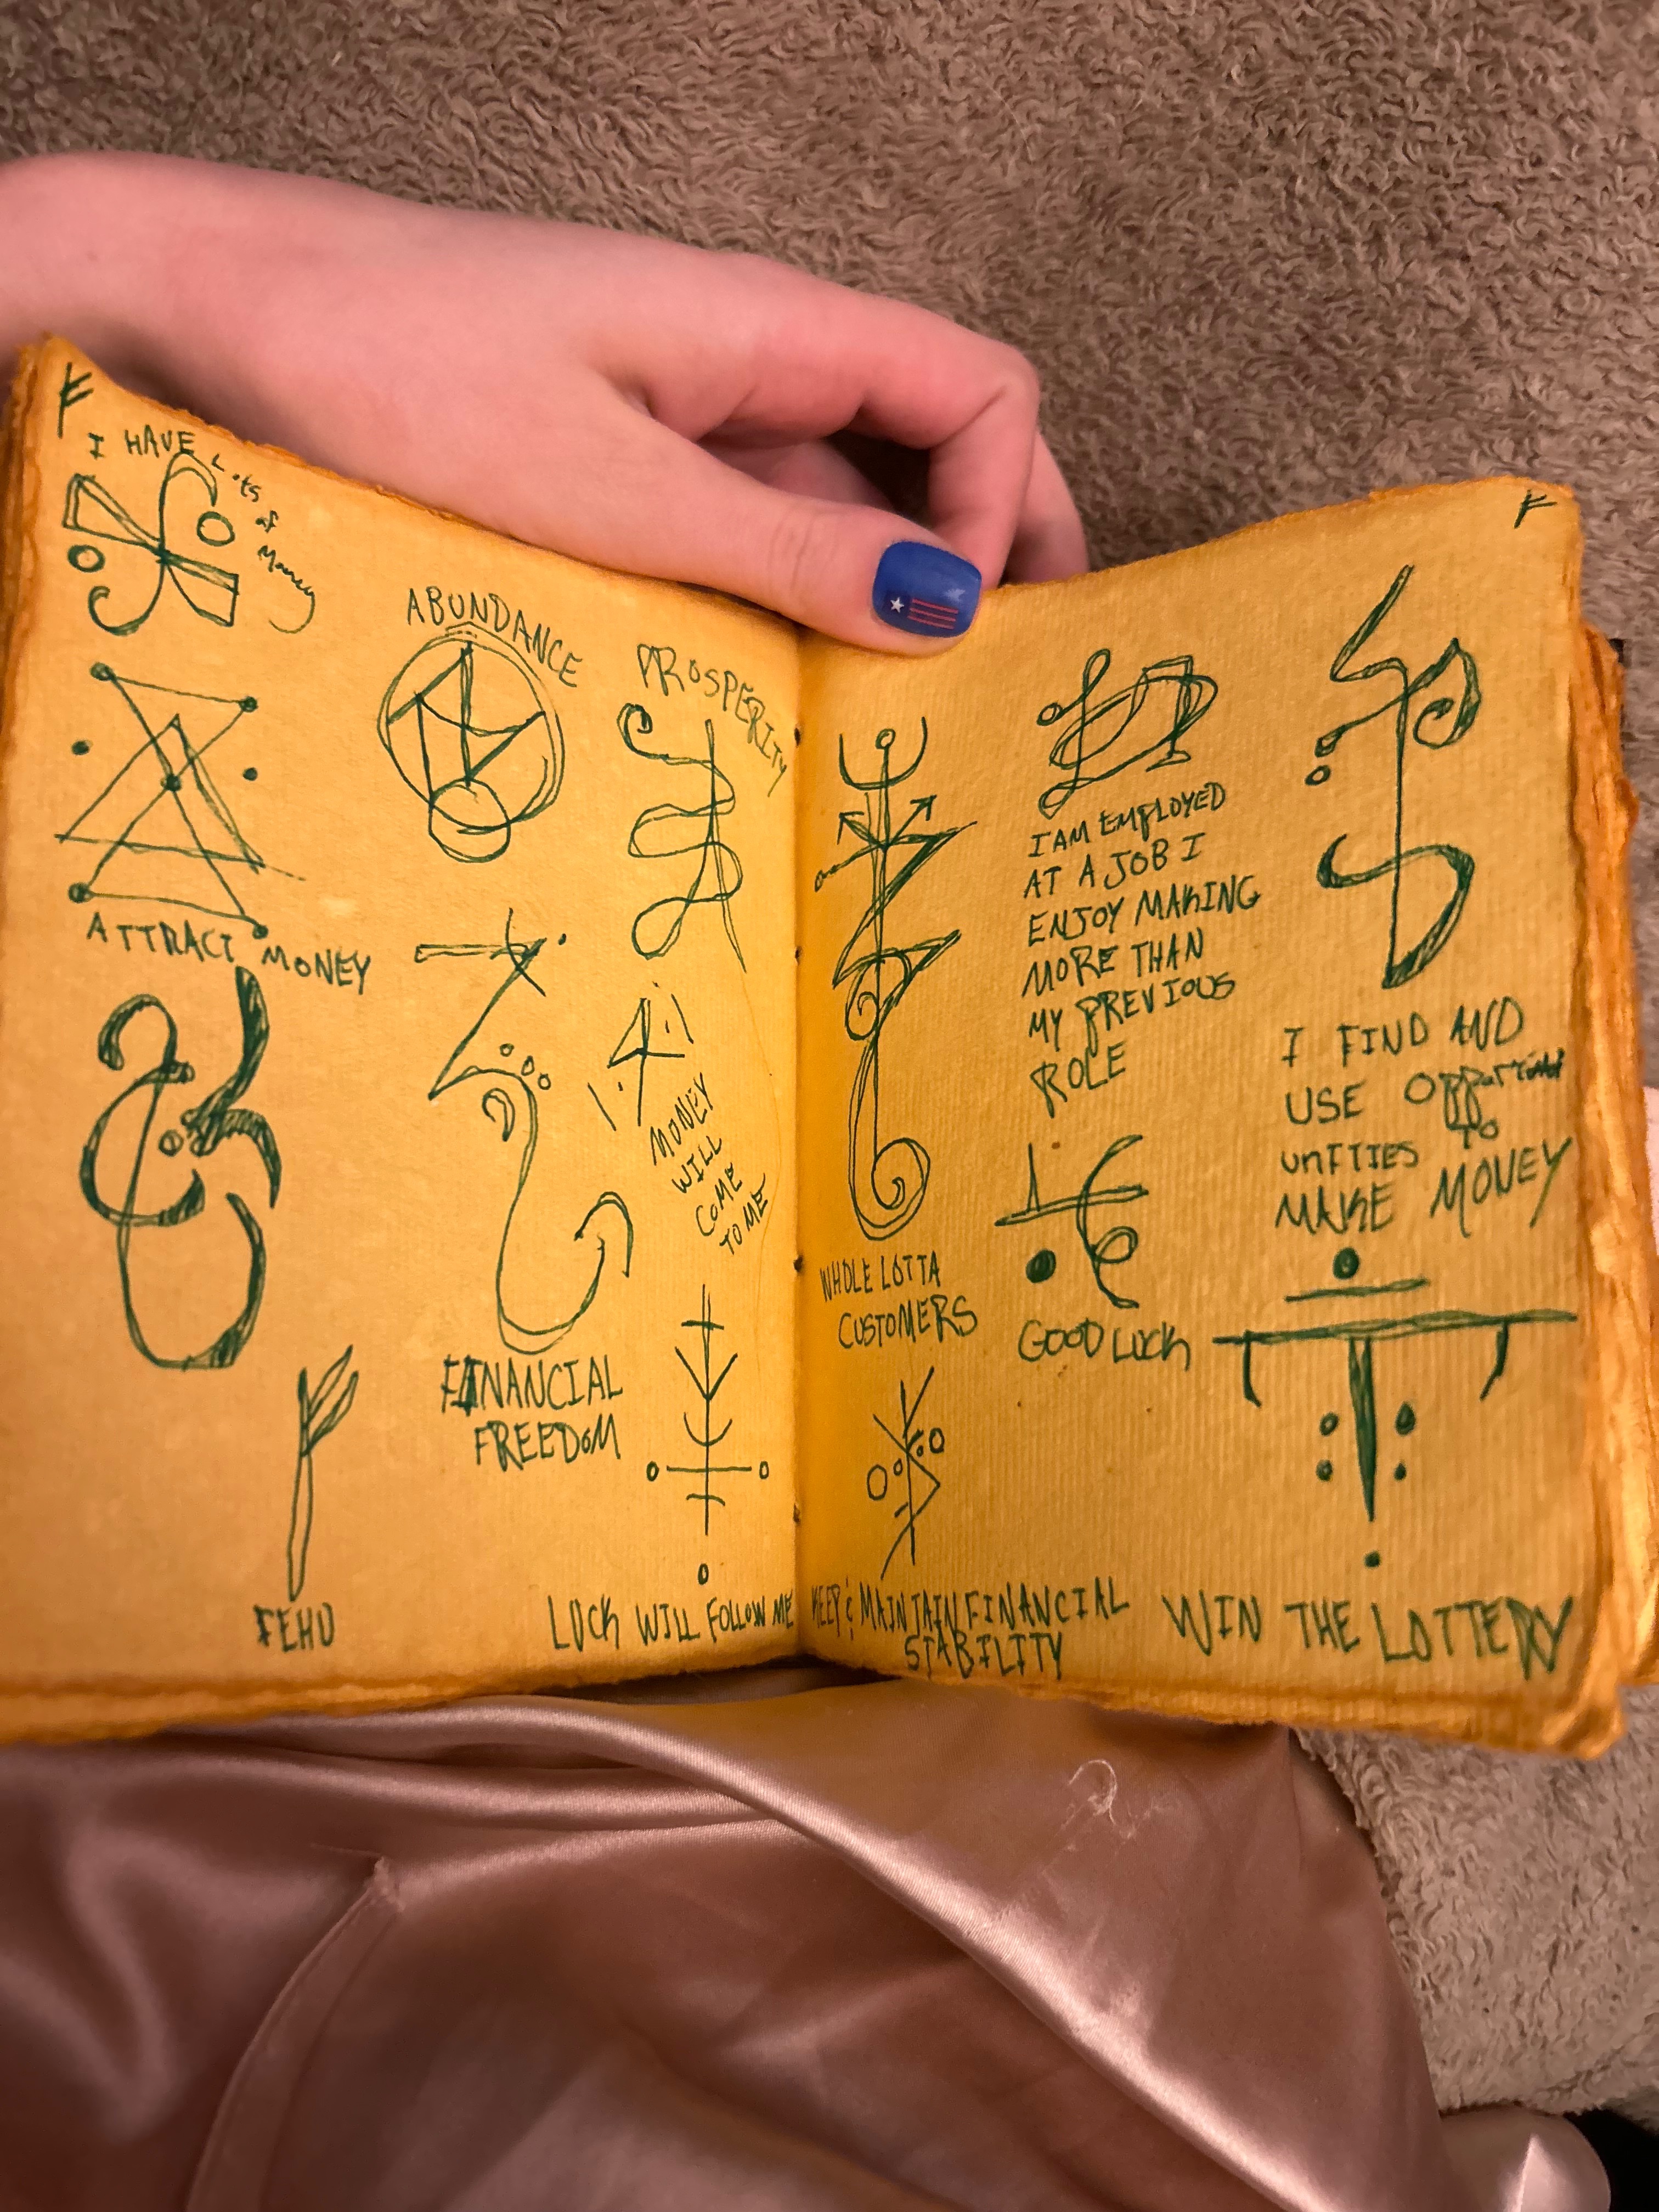 ᚠ
I HAVE Lots
of
Money
ABUNDANCE
PROSPERITY
ATTRACT MONEY
MONEY
WILL
COME
TO ME
FINANCIAL
FREEDOM
FEHU
LUCK WILL FOLLOW ME
ᚠ
I AM EMPLOYED
AT A JOB I
ENJOY MAKING
MORE THAN
MY PREVIOUS
ROLE
I FIND AND
USE
TO
UNITIES
MAKE MONEY
WHOLE LOTTA
CUSTOMERS
GOOD LUCK
KEEP & MAINTAIN FINANCIAL
STABILITY
WIN THE LOTTERY